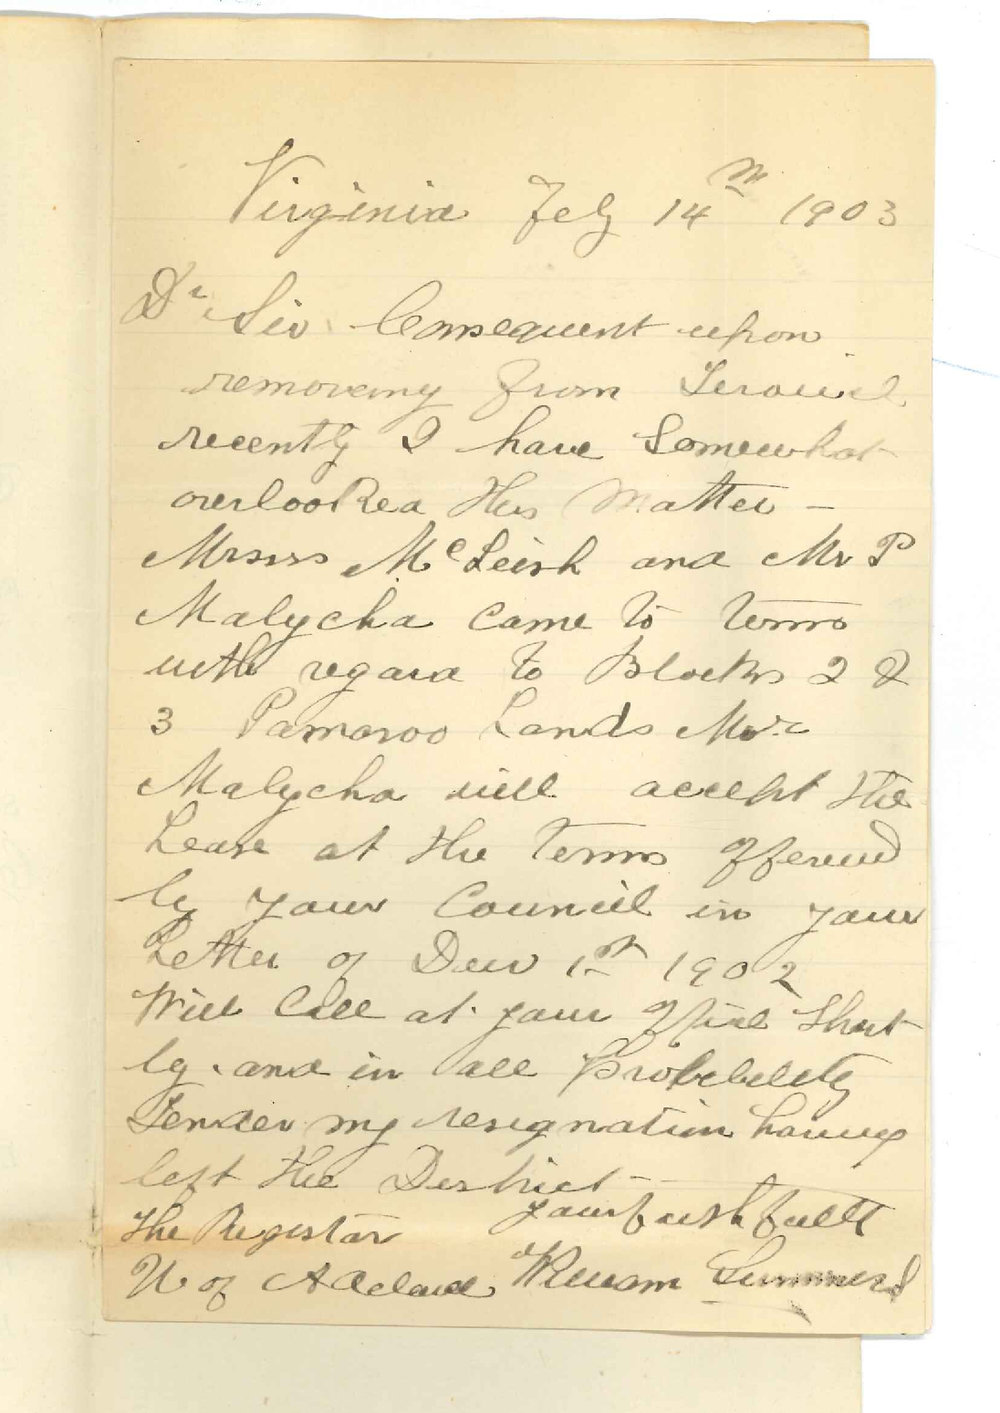 Virginia Feby 14th 1903
Dr Sir Consequent upon
removing from
recently I have Somewhat
overlooked this Matter —
Messrs McLeish and Mr P
Malycha Came to terms
with regard to Blocks 2 &
3 Pamoroo Lands Mr
Malycha will accept the
Lease at the terms offered
by your Council in your
Letter of Decr 1st 1902
Will Call at your Office Short
ly and in all Probability
Tender my resignation having
left the District —
The Registar yours faithfully
U of Adelaide William Summers